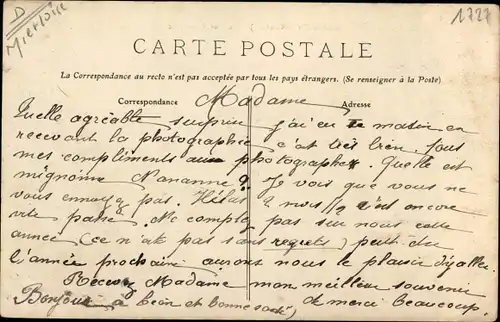 D
1727
CARTE POSTALE
La Correspondance au recto n'est pas acceptée par tous les pays étrangers. (Se renseigner à la Poste)
Correspondance Madame Adresse
Quelle agréable surprise j'ai eu ce matin en
recevant la photographie c'est très bien, tous
mes compliments aux photographes. Quelle est
mignonne Nananne ? Je vois que vous ne
vous ennuyez pas. Hélas 2 mois // c'est encore
vite passé. Ne comptez pas sur nous cette
année (ce n'ait pas sans regrets) peut-être
l'année prochaine aurons nous le plaisir d'y aller.
Recevez Madame mon meilleur souvenir
Bonjour à et bonne santé) et merci beaucoup.